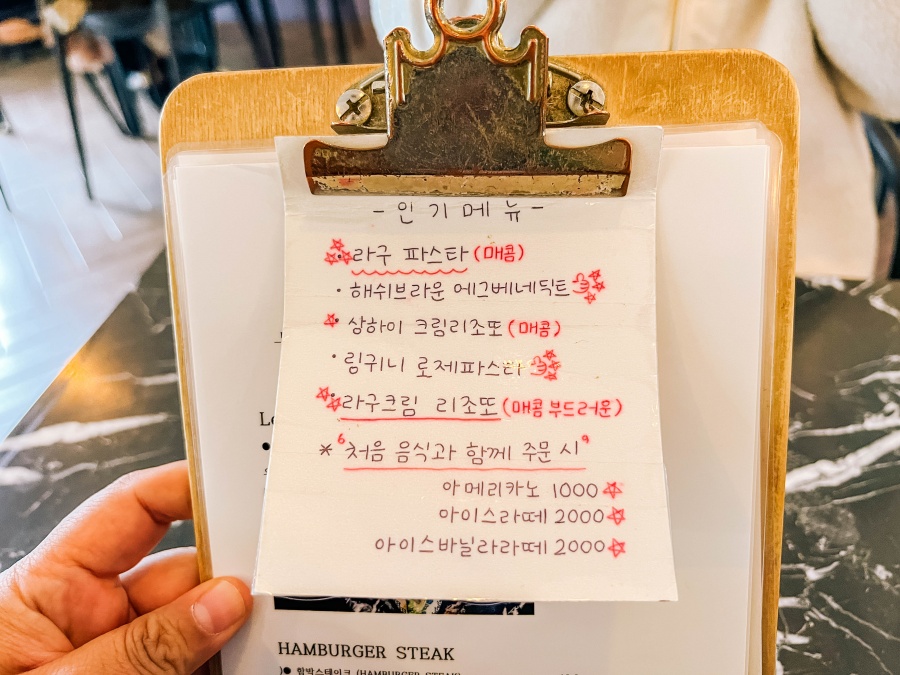 -인기메뉴-
· 라구 파스타 (매콤)
· 해쉬브라운 에그베네딕트
· 상하이 크림리조또 (매콤)
· 림귀니 로제파스타
· 라구크림 리조또 (매콤 부드러운)
* "처음 음식과 함께 주문 시"
아메리카노 1000
아이스라떼 2000
아이스바닐라라떼 2000
HAMBURGER STEAK
함박스테이크 (HAMBURGER STEAK)